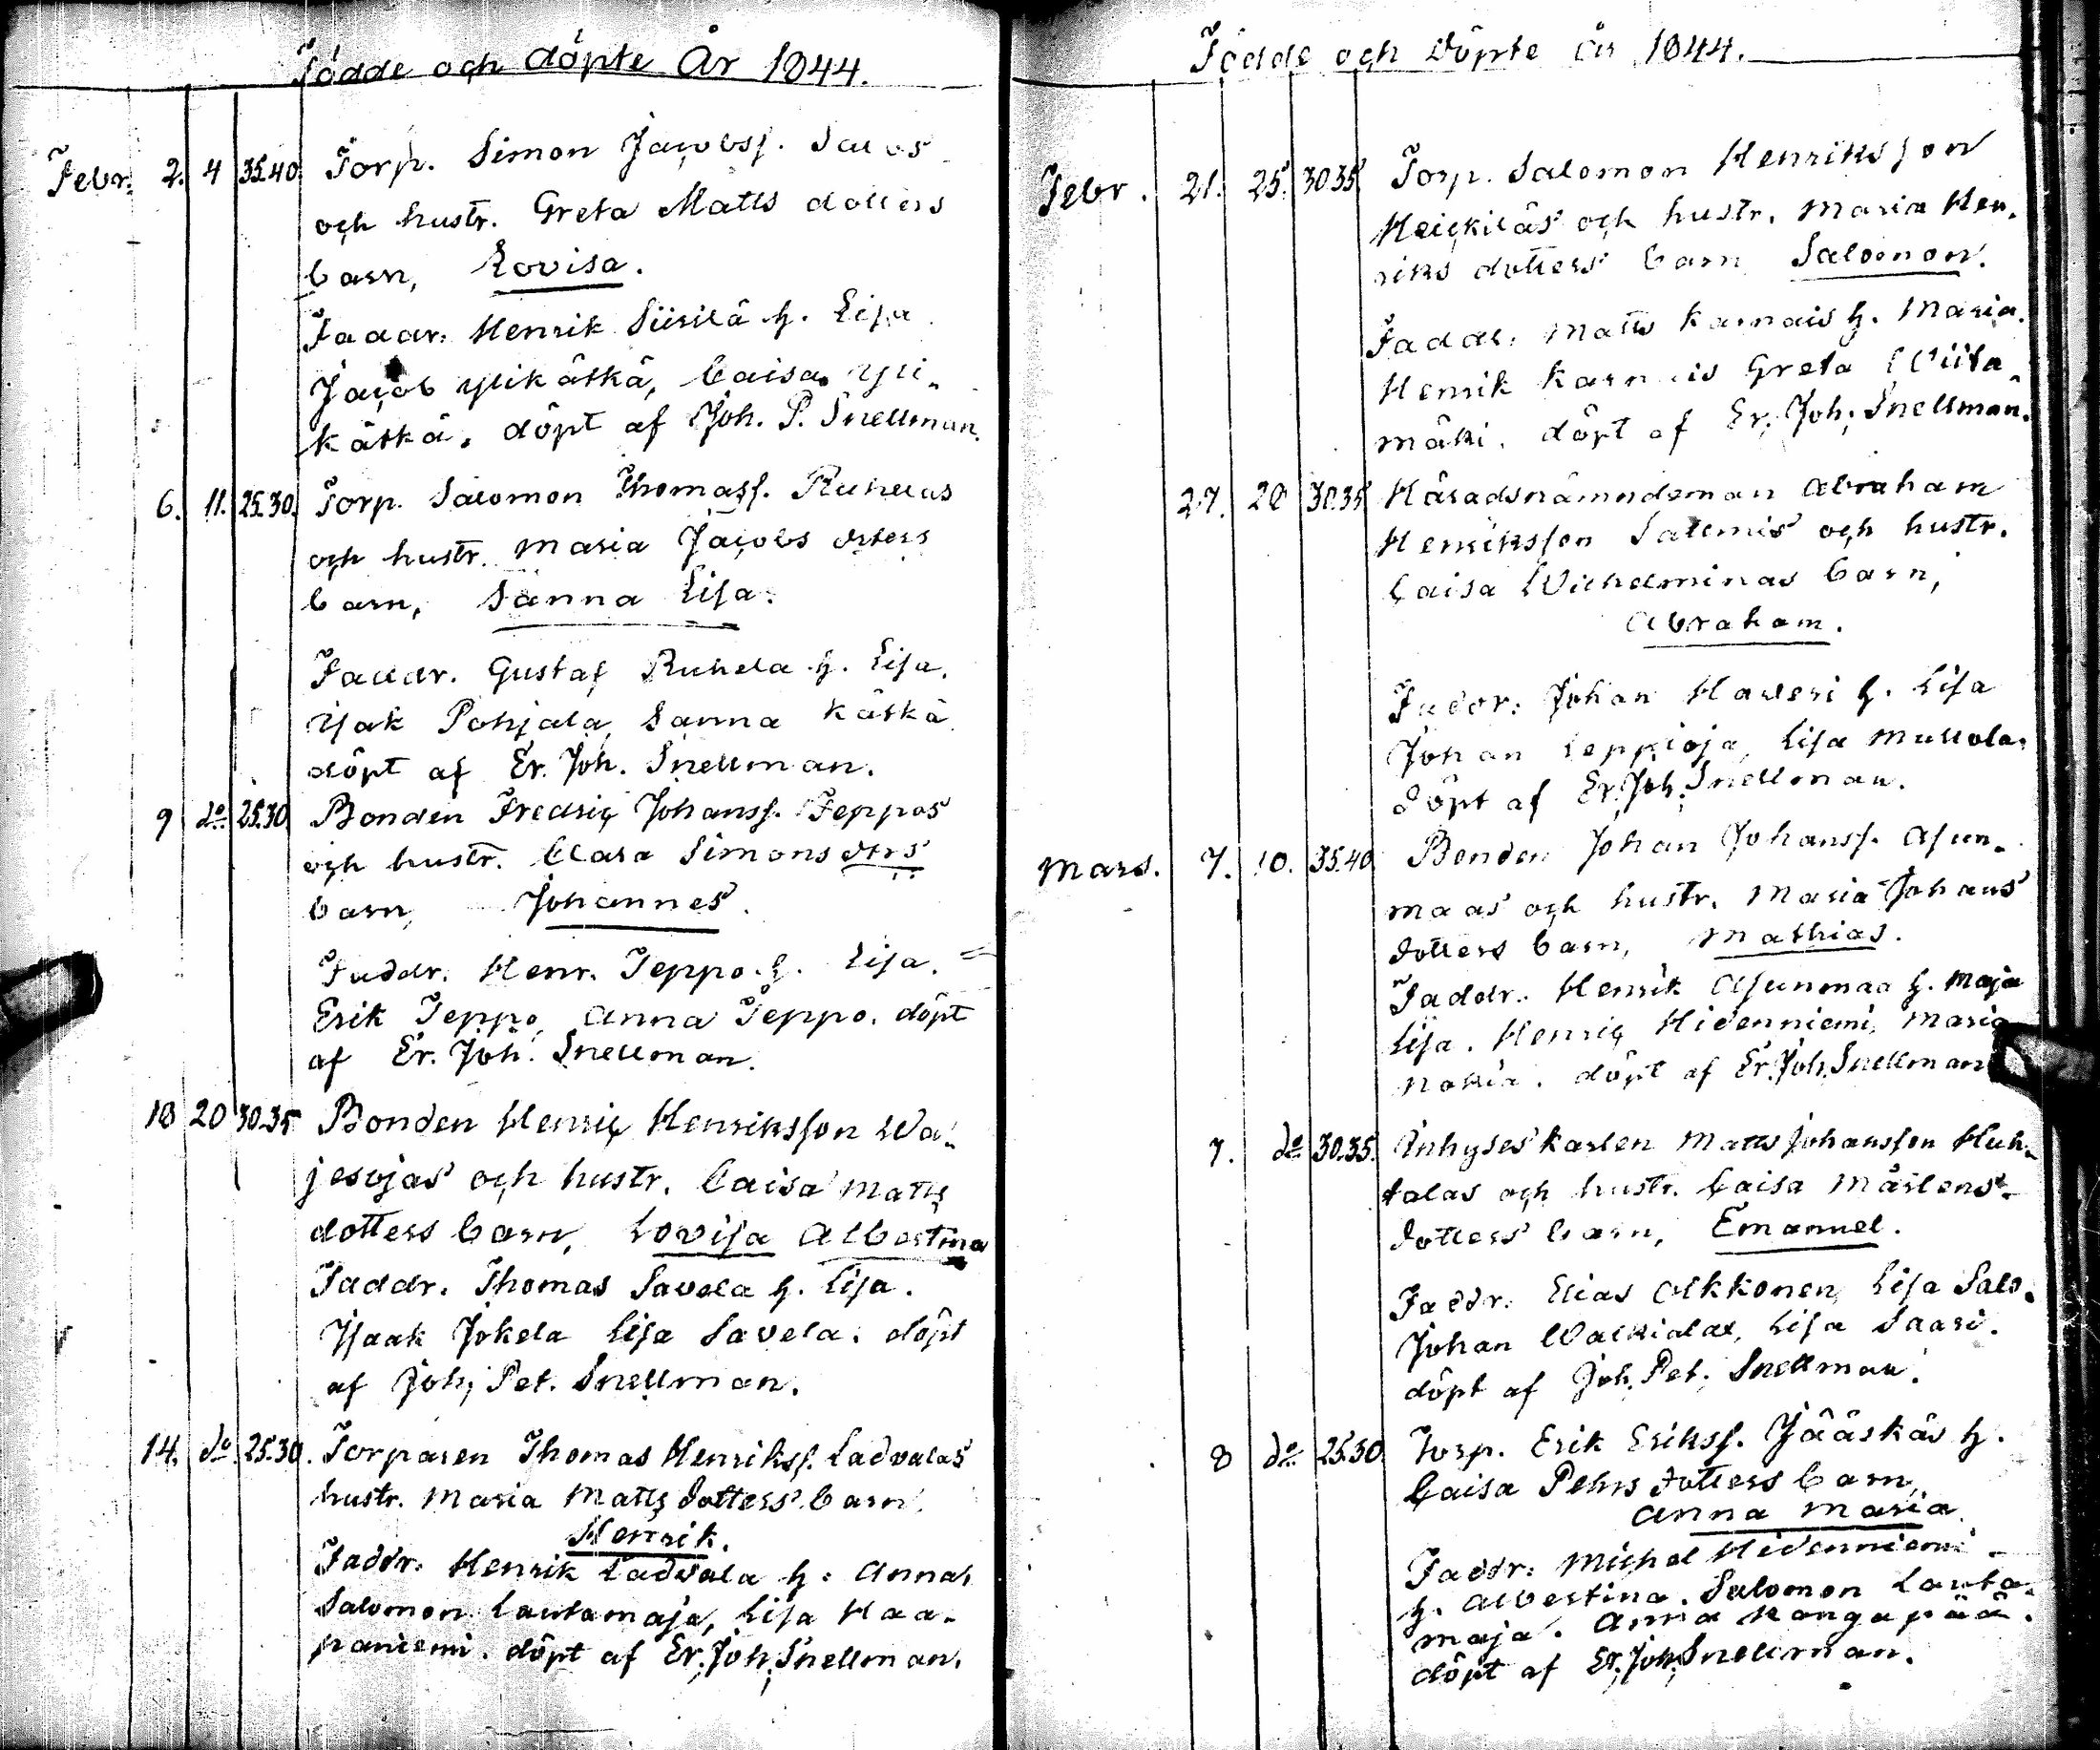 Födde och döpte År 1844.
Febr. 2. 4 35.40. Torp. Simon Jacobsf. Salos
och hustr. Greta Matts dotters
barn, Lovisa.
Faddr. Henrik Siirilä h. Lisa
Jacob Ylikätkä, Caisa Yli-
kätkä. döpt af Joh. P. Snellman.
6. 11. 25.30. Torp. Salomon Thomasf. Ruhelas
och hustr. Maria Jacobs drters
barn, Sanna Lisa.
Faddr. Gustaf Ruhela h. Lisa.
Isak Pohjala, Sanna Kätkä
döpt af Er. Joh. Snellman.
9 do 25.30 Bonden Fredric Johansf. Jeppos
och hustr. Clara Simons dtrs
barn, Johannes.
Faddr. Henr. Jeppo h. Lisa.
Erik Jeppo, Anna Jeppo. döpt
af Er. Joh. Snellman.
18 20 30.35 Bonden Henric Henriksson Wa-
jesojas och hustr. Caisa Matts
dotters barn, Lovisa Albertina
Faddr. Thomas Savela h. Lisa.
Isaak Jokela Lisa Savela. döpt
af Joh. Pet. Snellman.
14. do 25.30. Torparen Thomas Henriksf. Ladvalas
hustr. Maria Matts dotters barn
Henrik.
Faddr. Henrik Ladvala h. Anna,
Salomon Lautamaja, Lisa Haa-
paniemi. döpt af Er. Joh. Snellman.
Födde och Döpte År 1844.
Febr. 21. 25. 30.35. Torp. Salomon Henriksson
Heickiläs och hustr. Maria Hen-
riks dotters barn Salomon.
Faddr. Matts Karnais h. Maria.
Henrik Karnais Greta Wiita-
mäki. döpt af Er. Joh. Snellman.
27. 28 30.35 Häradsnämndeman Abraham
Henriksson Salemis och hustr.
Caisa Wilhelminas barn,
Abraham.
Faddr. Johan Haveri h. Lisa
Johan Leppioja, Lisa Mullola.
döpt af Er. Joh. Snellman.
Mars. 7. 10. 35.40 Bonden Johan Johansf. Asun-
maas och hustr. Maria Johans
dotters barn, Mathias.
Faddr. Henrik Asunmaa h. Maja
Lisa. Henric Hidenniemi, Maria
Nokia. döpt af Er. Joh. Snellman
7. do 30.35. Inhyseskarlen Matts Johansson Huh-
talas och hustr. Caisa Mårtens-
dotters barn, Emanuel.
Faddr. Elias Olkkonen, Lisa Salo.
Johan Walkiala, Lisa Saari.
döpt af Joh. Pet. Snellman.
8 do 25.30 Torp. Erik Eriksf. Jääskäs h.
Caisa Pehrs dotters barn,
Anna Maria
Faddr. Michel Hidenniemi
h. Albertina. Salomon Lauta-
maja. Anna Kangapää.
döpt af Er. Joh. Snellman.